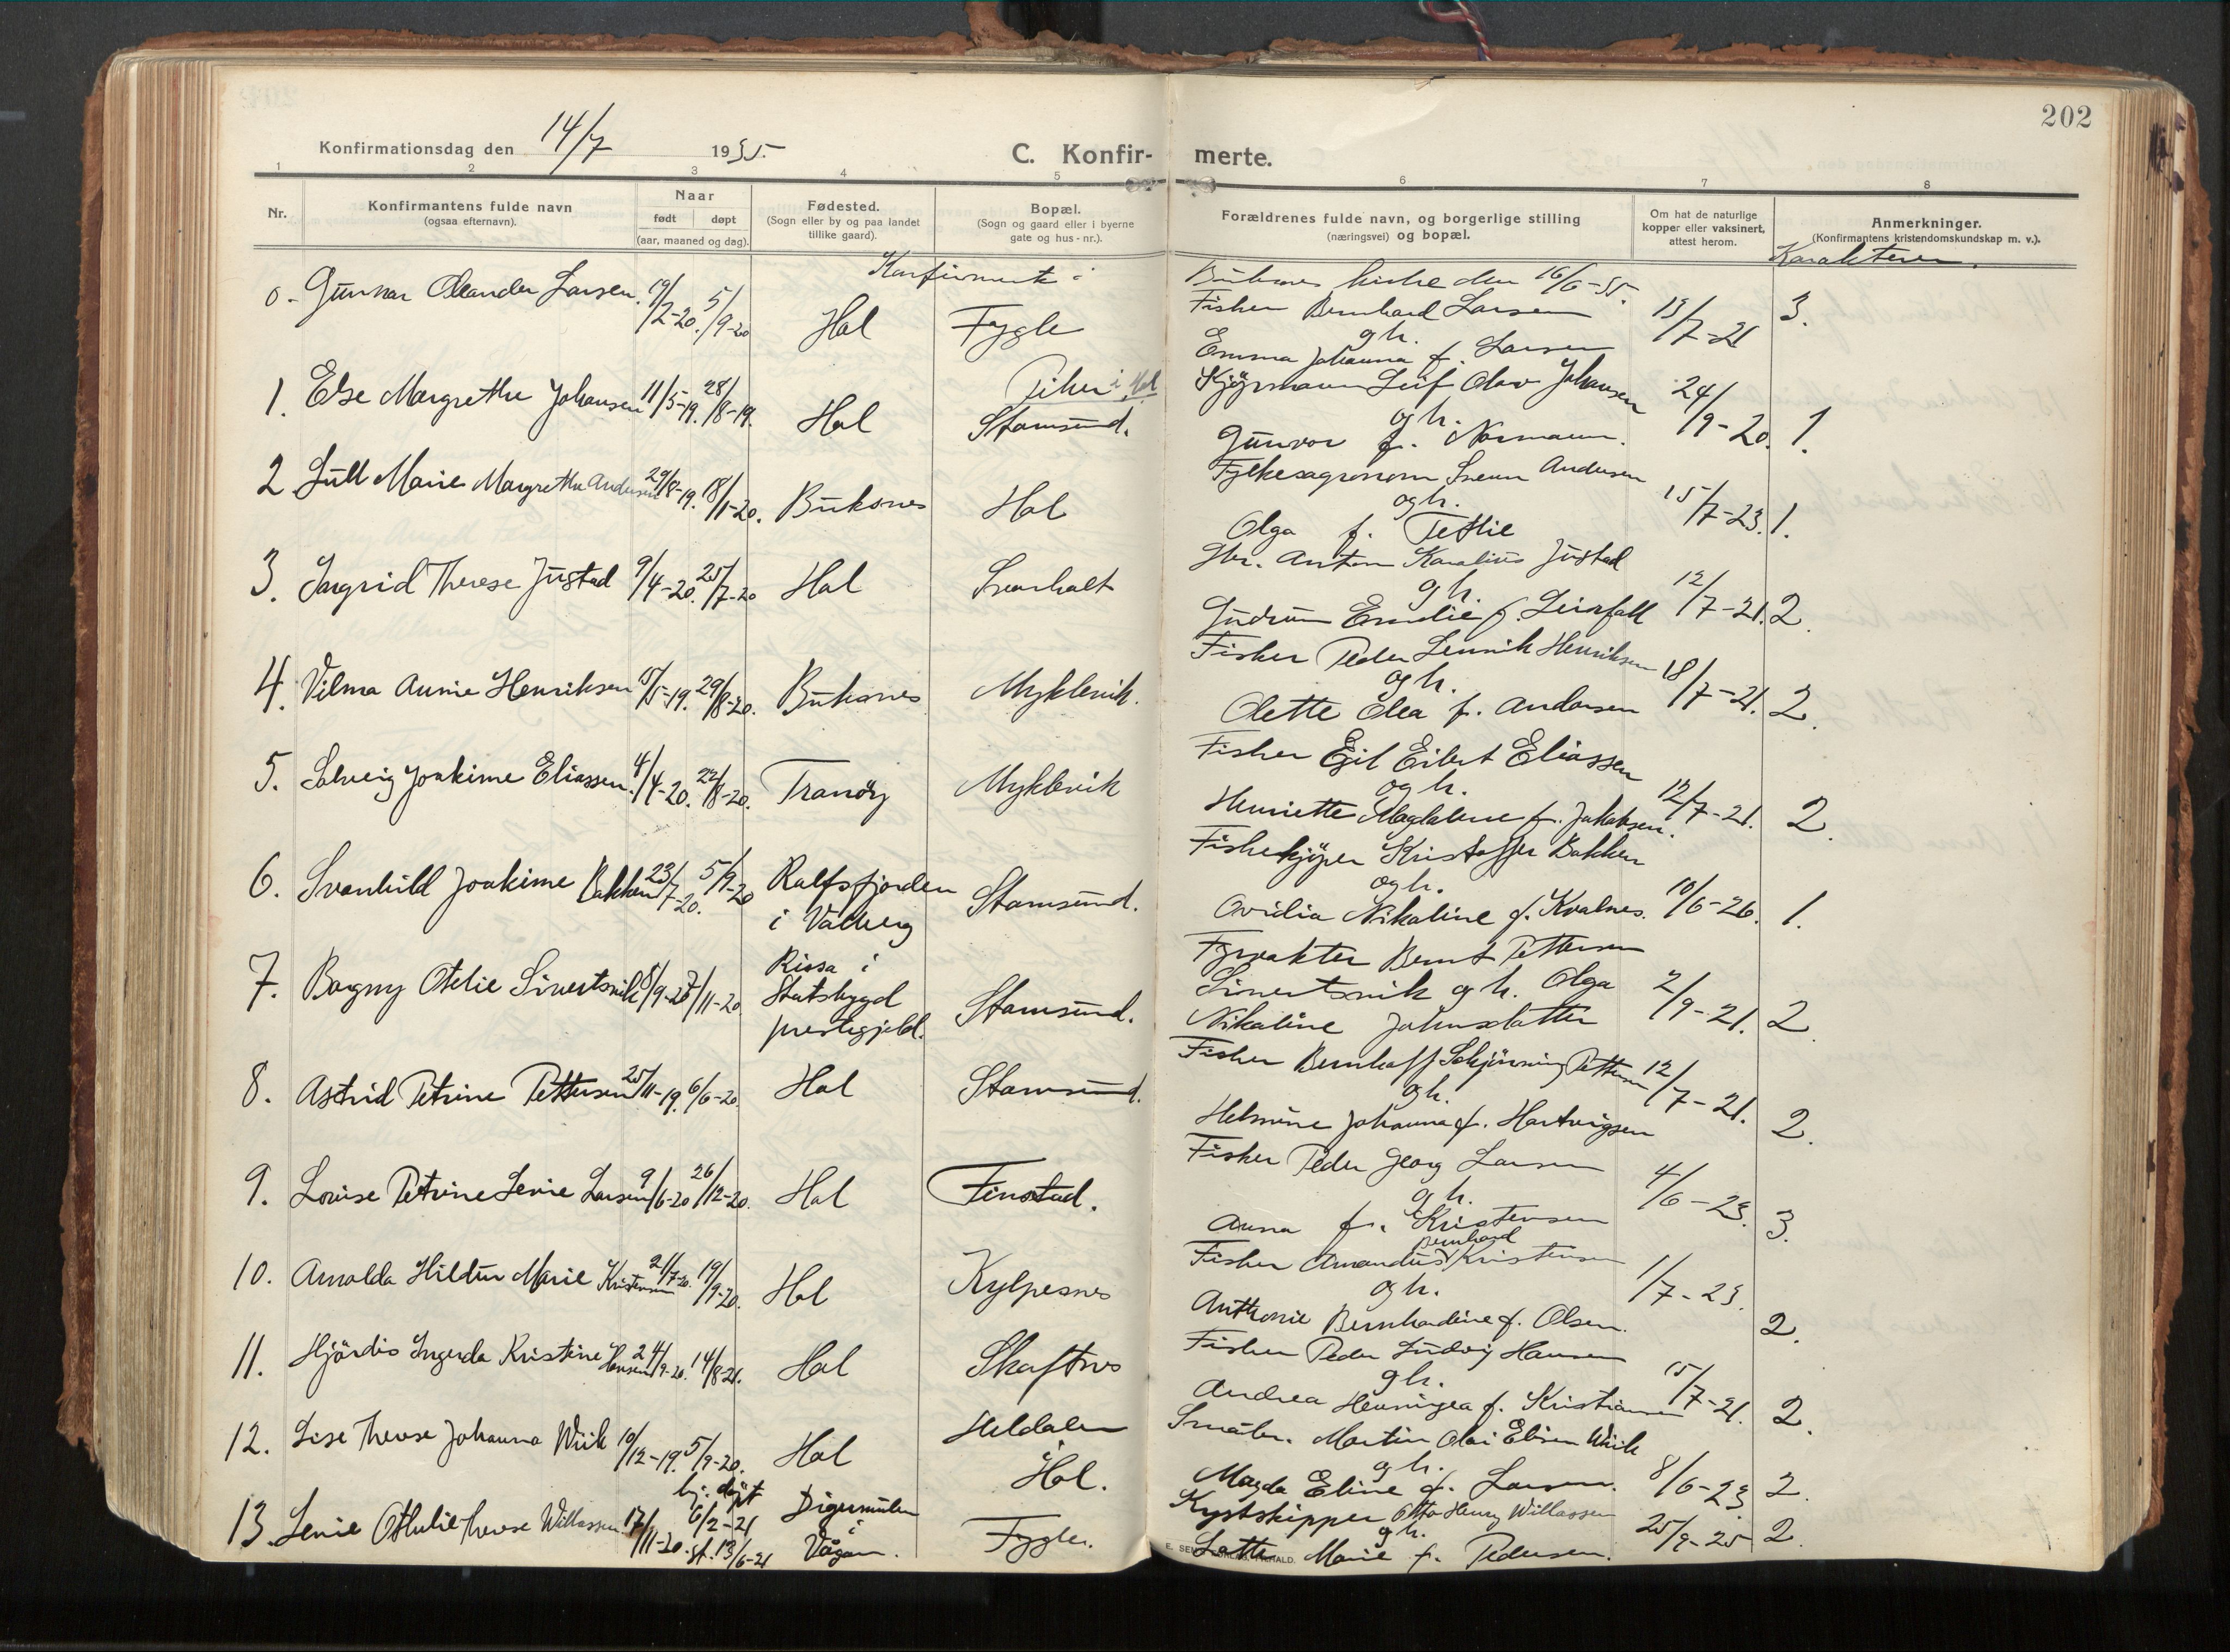 202
Konfirmationsdag den 14/7 1935.
C. Konfir- merte.
1 2 3 4 5 6 7 8
Nr.
Konfirmantens fulde navn
(ogsaa efternavn).
Naar
født døpt
(aar, maaned og dag).
Fødested.
(Sogn eller by og paa landet
tillike gaard).
Bopæl.
(Sogn og gaard eller i byerne
gate og hus-nr.).
Forældrenes fulde navn, og borgerlige stilling
(næringsvei) og bopæl.
Om hat de naturlige
kopper eller vaksinert,
attest herom.
Anmerkninger.
(Konfirmantens kristendomskundskap m. v.).
Karakterer.
Konfirmert i Buksnes kirke den 16/6-35.
0. Gunnar Oleander Larsen. 19/2-20. 5/9-20 Hol Fygle
Fisker Bernhard Larsen
og h.
Emma Johanna f. Larsen
13/7-21 3.
Piker i Hol
1. Else Margrethe Johansen 11/5-19. 28/8-19. Hol Stamsund.
Kjøpmann Leif Olav Johansen
og h.
Gunvor f. Normann.
24/9-20. 1.
2. Lull Marie Margrethe Andersen 29/8-19. 18/1-20. Buksnes Hol
Fylkesagronom Svenn Andersen
og h.
Olga f. Tetlie
15/7-23. 1.
3. Ingrid Therese Justad 9/4-20. 25/7-20 Hol Svarholt
Gbr. Anton Karelius Justad
og h.
Gudrun Emilie f. Leirfall
12/7-21. 2.
4. Vilma Annie Henriksen 15/5-19. 29/8-20. Buksnes Myklevik.
Fisker Peder Lennik Henriksen
og h.
Olette Olea f. Andersen
18/7-21. 2.
5. Solveig Joakime Eliassen. 4/4-20. 22/8-20. Tranøy Myklevik
Fisker Egil Eilert Eliassen
og h.
Henriette Magdalene f. Jakobsen.
12/7-21. 2.
6. Svanhild Joakime Bakken 23/7-20. 5/9-20 Ralfsfjorden
i Valberg
Stamsund.
Fiskekjøper Kristoffer Bakken
og h.
Ovidia Nikoline f. Kvalnes.
10/6-26. 1.
7. Borgny Otelie Sivertsvik 8/9-20 7/11-20. Rissa i
Statsbygd
prestegjeld.
Stamsund.
Fyrvakter Bernt Pettersen
Sivertsvik og h. Olga
Nikoline Johnsdatter
2/9-21. 2.
8. Astrid Petrine Pettersen 25/11-19. 6/6-20. Hol Stamsund.
Fisker Bernhoff Schjønning Pettersen
og h.
Helmine Johanna f. Hartvigsen
12/7-21. 2.
9. Lovise Petrine Lenie Larsen 9/6-20 26/12-20. Hol Finstad.
Fisker Peder Georg Larsen
og h.
Anna f. Kristensen
4/6-23. 3.
10. Arnolda Hildur Marie Kristensen 21/7-20. 19/9-20. Hol Kylpesnes
Bernhard
Fisker Amandus Kristensen
og h.
Anthonie Bernhardine f. Olsen.
1/7-23. 2.
11. Hjördis Ingerda Kristine Hansen 24/9-20. 14/8-21. Hol Skaftnes
Fisker Peder Ludvig Hansen
og h.
Andrea Henningea f. Kristiansen
15/7-21. 2.
12. Lise Therese Johanna Wiik 10/12-19. 5/9-20. Hol Heldalen
i
Hol.
Småbr. Martin Olai Elisen Wiik
og h.
Magda Eline f. Larsen.
8/6-23 2.
13. Lenie Othelie Therese Willassen 17/11-20. hj. døpt
6/2-21
st. 13/6-21
Digermulen
i
Vågan.
Fygle.
Kystskipper Otto Henry Willassen
og h.
Lotte Marie f. Pedersen.
25/9-25 2.